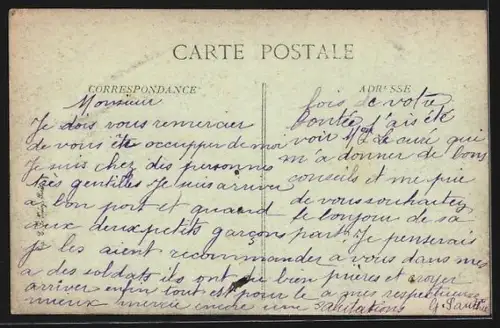 CARTE POSTALE
CORRESPONDANCE
Monsieur
Je dois vous remercier
de vous êtes occupper de moi
Je suis chez des personnes
très gentilles Je suis arrivé
a bon port et quand
aux deux petits garçons
je les aient recommander
a des soldats ils ont du bien
arriver enfin tout est pour le
mieux mercie encore une
ADRESSE
fois de votre
bontée j'ais été
voir Mr Le curé qui
m'a donner de bons
conseils et me prie
de vous souhaitez
le bonjour de sa
part. Je penserais
a vous dans mes
prières et croyez
a mes respectueuses
salutations